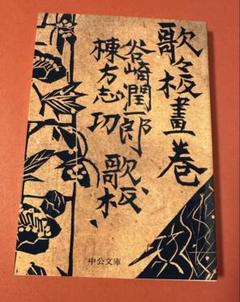 歌々板畫巻
谷崎潤一郎
棟方志功
歌板
中公文庫